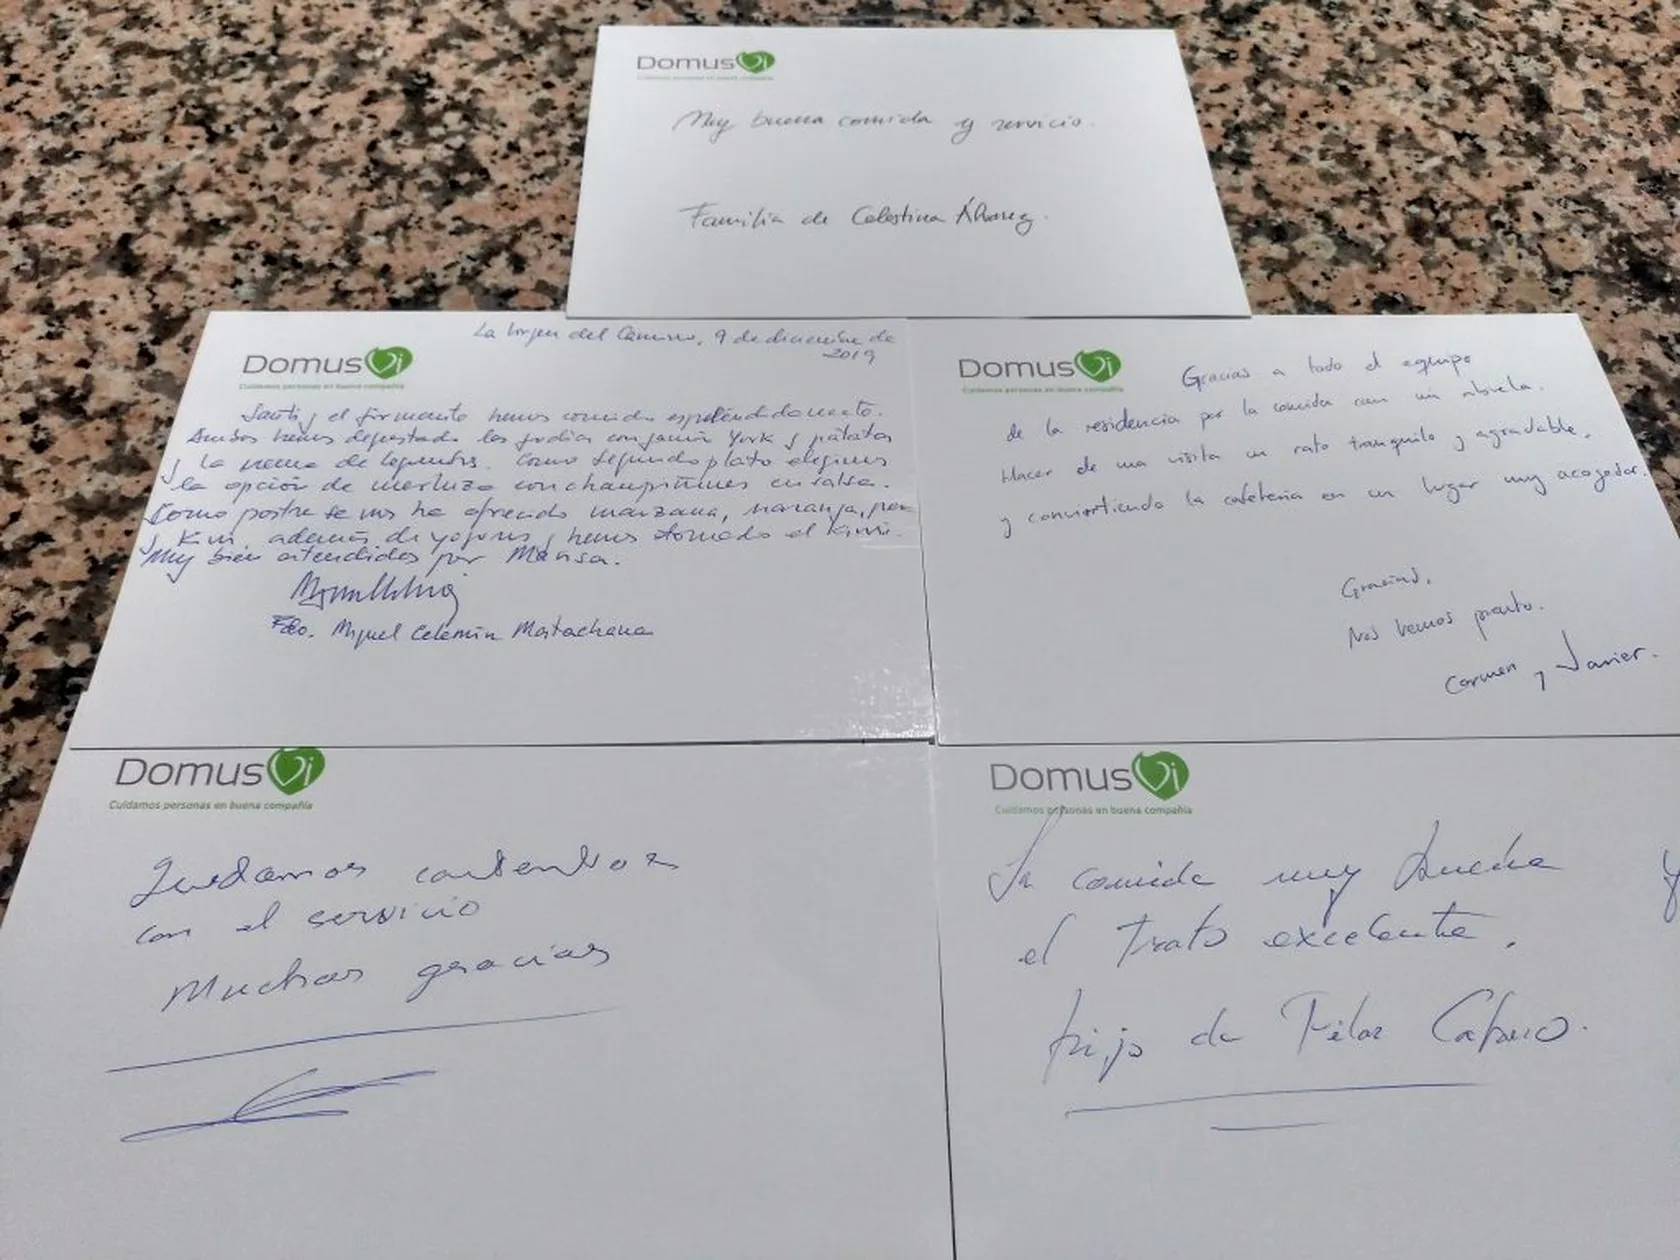 DomusVi
Cuidamos personas en buena compañía
Muy buena comida y servicio.
Familia de Celestina Álvarez.
La Virgen del Camino, 9 de diciembre de
2019
DomusVi
Cuidamos personas en buena compañía
Santi y el firmante hemos comido espléndidamente.
Ambos hemos degustado las judías con jamón York y patatas
y la crema de legumbres. Como segundo plato elegimos
la opción de merluza con champiñones en salsa.
Como postre se nos ha ofrecido manzana, naranja, pera
y Kiwi, además de yogures y hemos tomado el kiwi.
Muy bien atendidos por Marisa.
Fdo. Miguel Celemín Matachana
DomusVi
Cuidamos personas en buena compañía
Gracias a todo el equipo
de la residencia por la comida con mi abuela.
Hacer de una visita un rato tranquilo y agradable,
y convirtiendo la cafetería en un lugar muy acogedor.
Gracias,
Nos vemos pronto.
Carmen y Javier.
DomusVi
Cuidamos personas en buena compañía
Quedamos contentos
con el servicio
Muchas gracias
DomusVi
Cuidamos personas en buena compañía
La comida muy buena y
el trato excelente.
hijo de Pilar